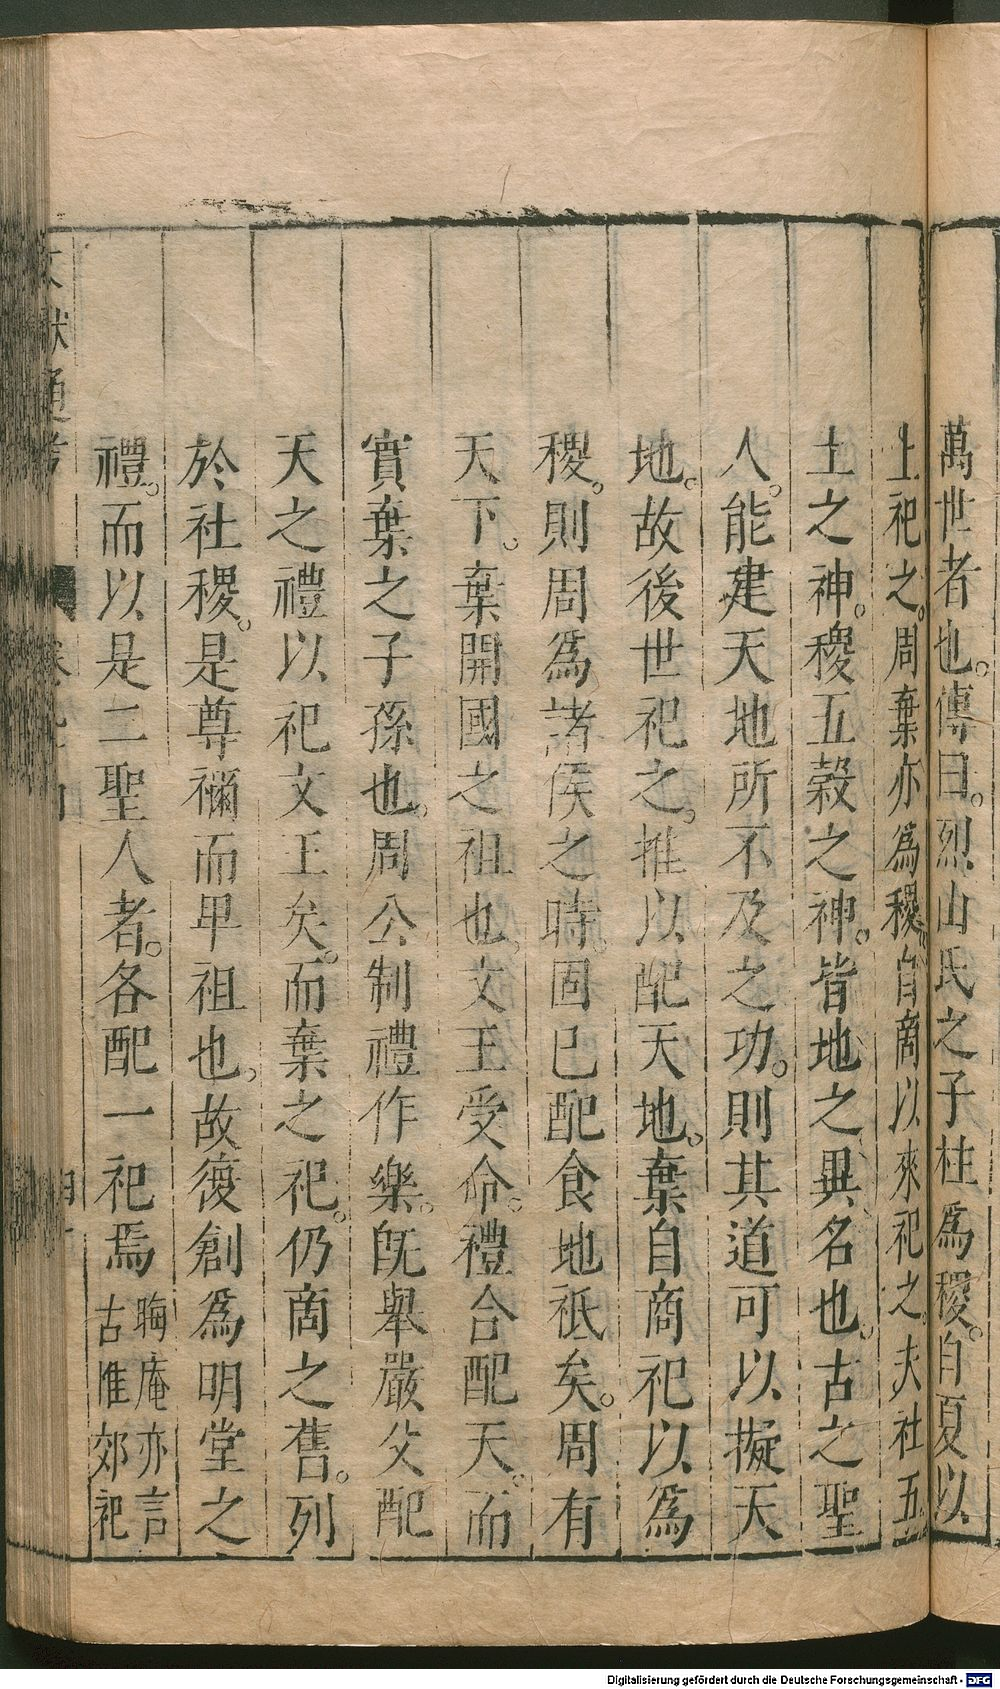 萬世者也。傳曰。烈山氏之子柱爲稷。自夏以
上祀之。周棄亦爲稷。自商以來祀之。夫社五
土之神。稷五穀之神。皆地之異名也。古之聖
人。能建天地所不及之功。則其道可以擬天
地。故後世祀之。推以配天地。棄自商祀以爲
稷。則周爲諸侯之時。固已配食地祇矣。周有
天下。棄開國之祖也。文王受命。禮合配天。而
實棄之子孫也。周公制禮作樂。旣舉嚴父配
天之禮以祀文王矣。而棄之祀。仍商之舊。列
於社稷。是尊禰而卑祖也。故復創爲明堂之
禮。而以是二聖人者。各配一祀焉
晦庵亦言
古惟郊祀
文獻通考
Digitalisierung gefördert durch die Deutsche Forschungsgemeinschaft - DFG